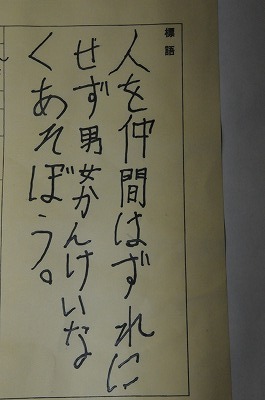 標語
人を仲間はずれに
せず男女かんけいな
くあそぼう。